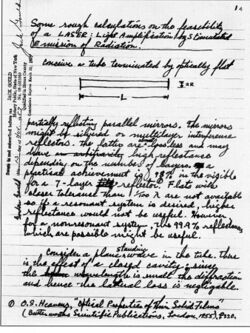 Some rough calculations on the feasibility
of a LASER: Light Amplification by Stimulated
Emission of Radiation.
conceive a tube terminated by optically flat
L
partially reflecting parallel mirrors. The mirrors
might be silvered or multilayer interference
reflectors. The latter are lossless and may
have high reflectance
depending on the number of layers. A
practical achievement is 98% in the visible
for a 7-layer reflector. Flats with
closer tolerance than are not available
so if a resonant system is desired, higher
reflectance would not be useful. However
for a nonresonant system, the 99.9% reflectance
which are possible might be useful.
Consider a plane standing wave in the tube. There
is the effect of a closed cavity; since
the wavelength is small the diffraction
and hence the lateral loss is negligible.
O.S. Heavens, Optical Properties of Thin Solid Films
(Butterworths Scientific Publications, London, 1955), P220.
JACK GOULD